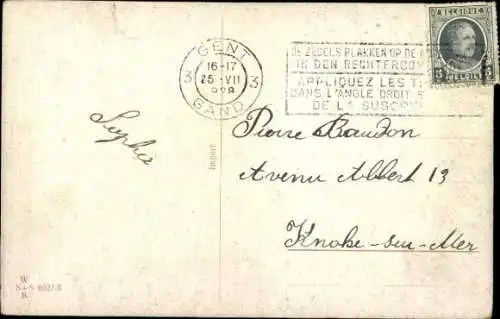 GENT
16-17
3 25 VII 3
928
GAND
DE ZEGELS PLAKKEN OP DE
IN DEN RECHTERBOV
APPLIQUEZ LES TI
DANS L'ANGLE DROIT
DE LA SUSCRI
BELGIQUE
5 5
BELGIË
Sophie
Import
Pierre Baudon
Avenu Albert 13
Knoke-sur-Mer
W
S+S 6027-3
B